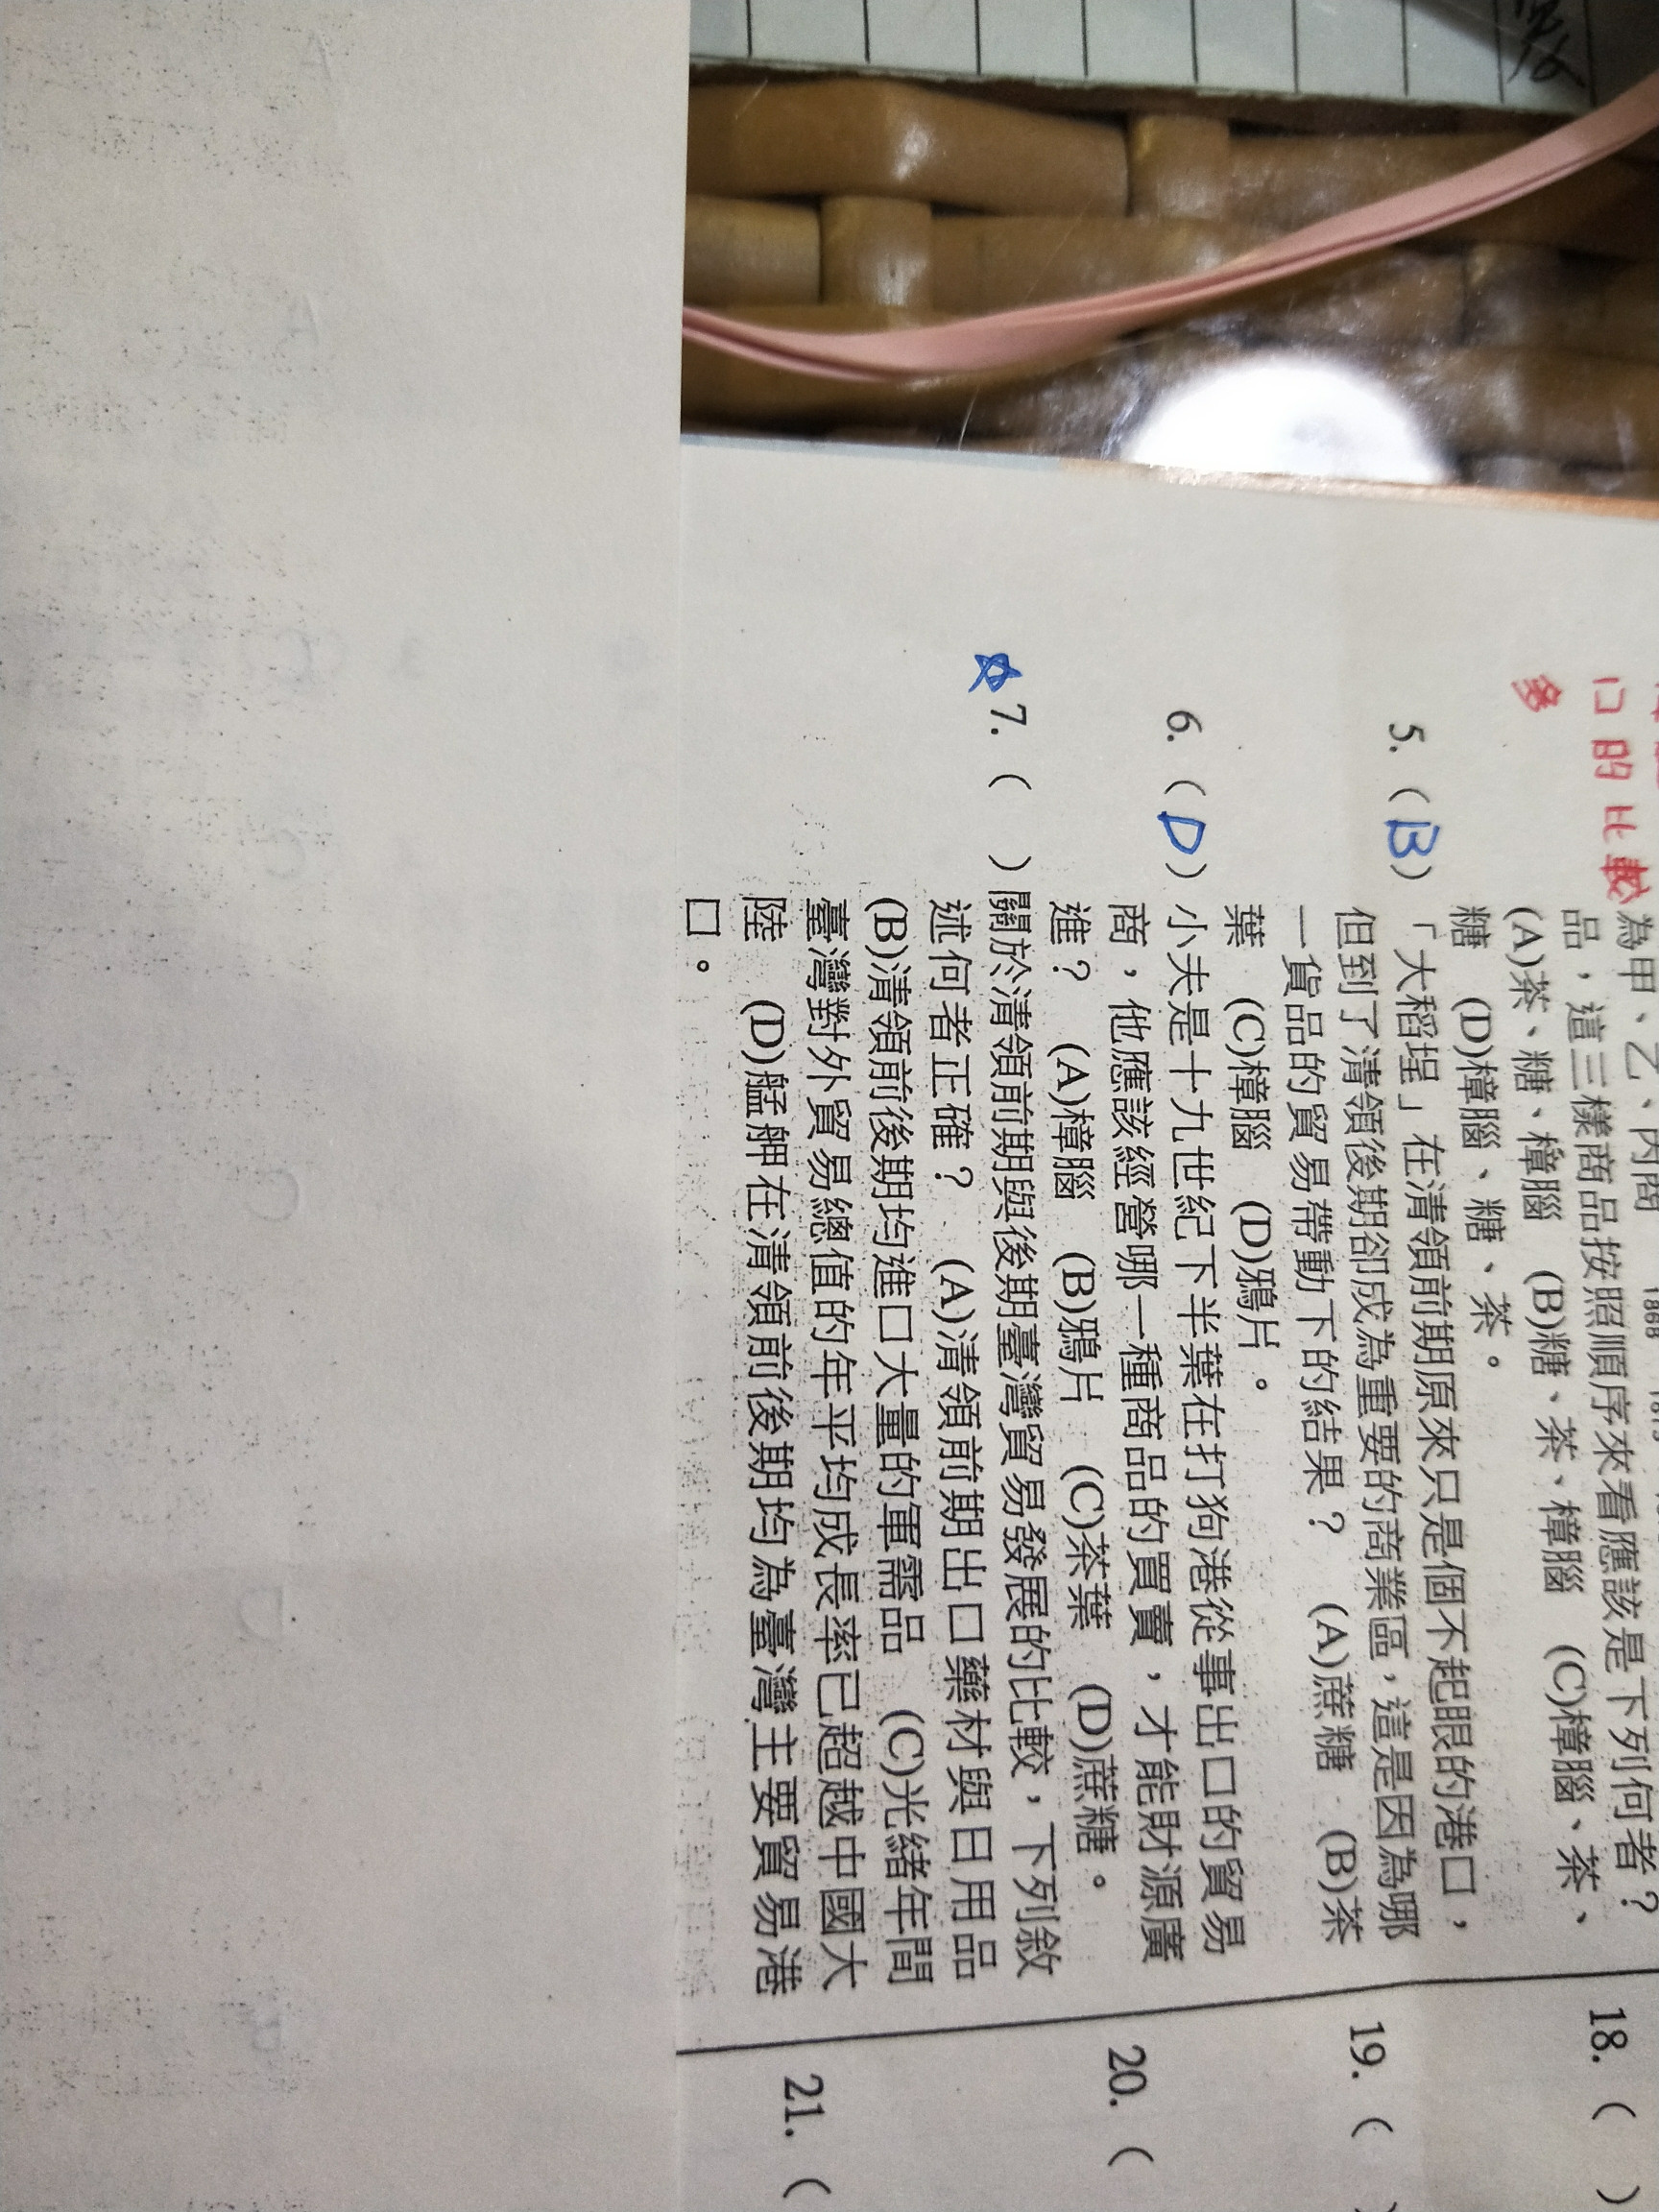 口的比較
多
為甲、乙、丙商
品，這三樣商品按照順序來看應該是下列何者？
(A)茶、糖、樟腦 (B)糖、茶、樟腦 (C)樟腦、茶、
糖 (D)樟腦、糖、茶。
5.(B)「大稻埕」在清領前期原來只是個不起眼的港口，
但到了清領後期卻成為重要的商業區，這是因為哪
一貨品的貿易帶動下的結果？ (A)蔗糖 (B)茶
葉 (C)樟腦 (D)鴉片。
6.(D)小夫是十九世紀下半葉在打狗港從事出口的貿易
商，他應該經營哪一種商品的買賣，才能財源廣
進？ (A)樟腦 (B)鴉片 (C)茶葉 (D)蔗糖。
☆7.( )關於清領前期與後期臺灣貿易發展的比較，下列敘
述何者正確？ (A)清領前期出口藥材與日用品
(B)清領前後期均進口大量的軍需品 (C)光緒年間
臺灣對外貿易總值的年平均成長率已超越中國大
陸 (D)艋舺在清領前後期均為臺灣主要貿易港
口。
18.( )
19.( )
20.(
21.(